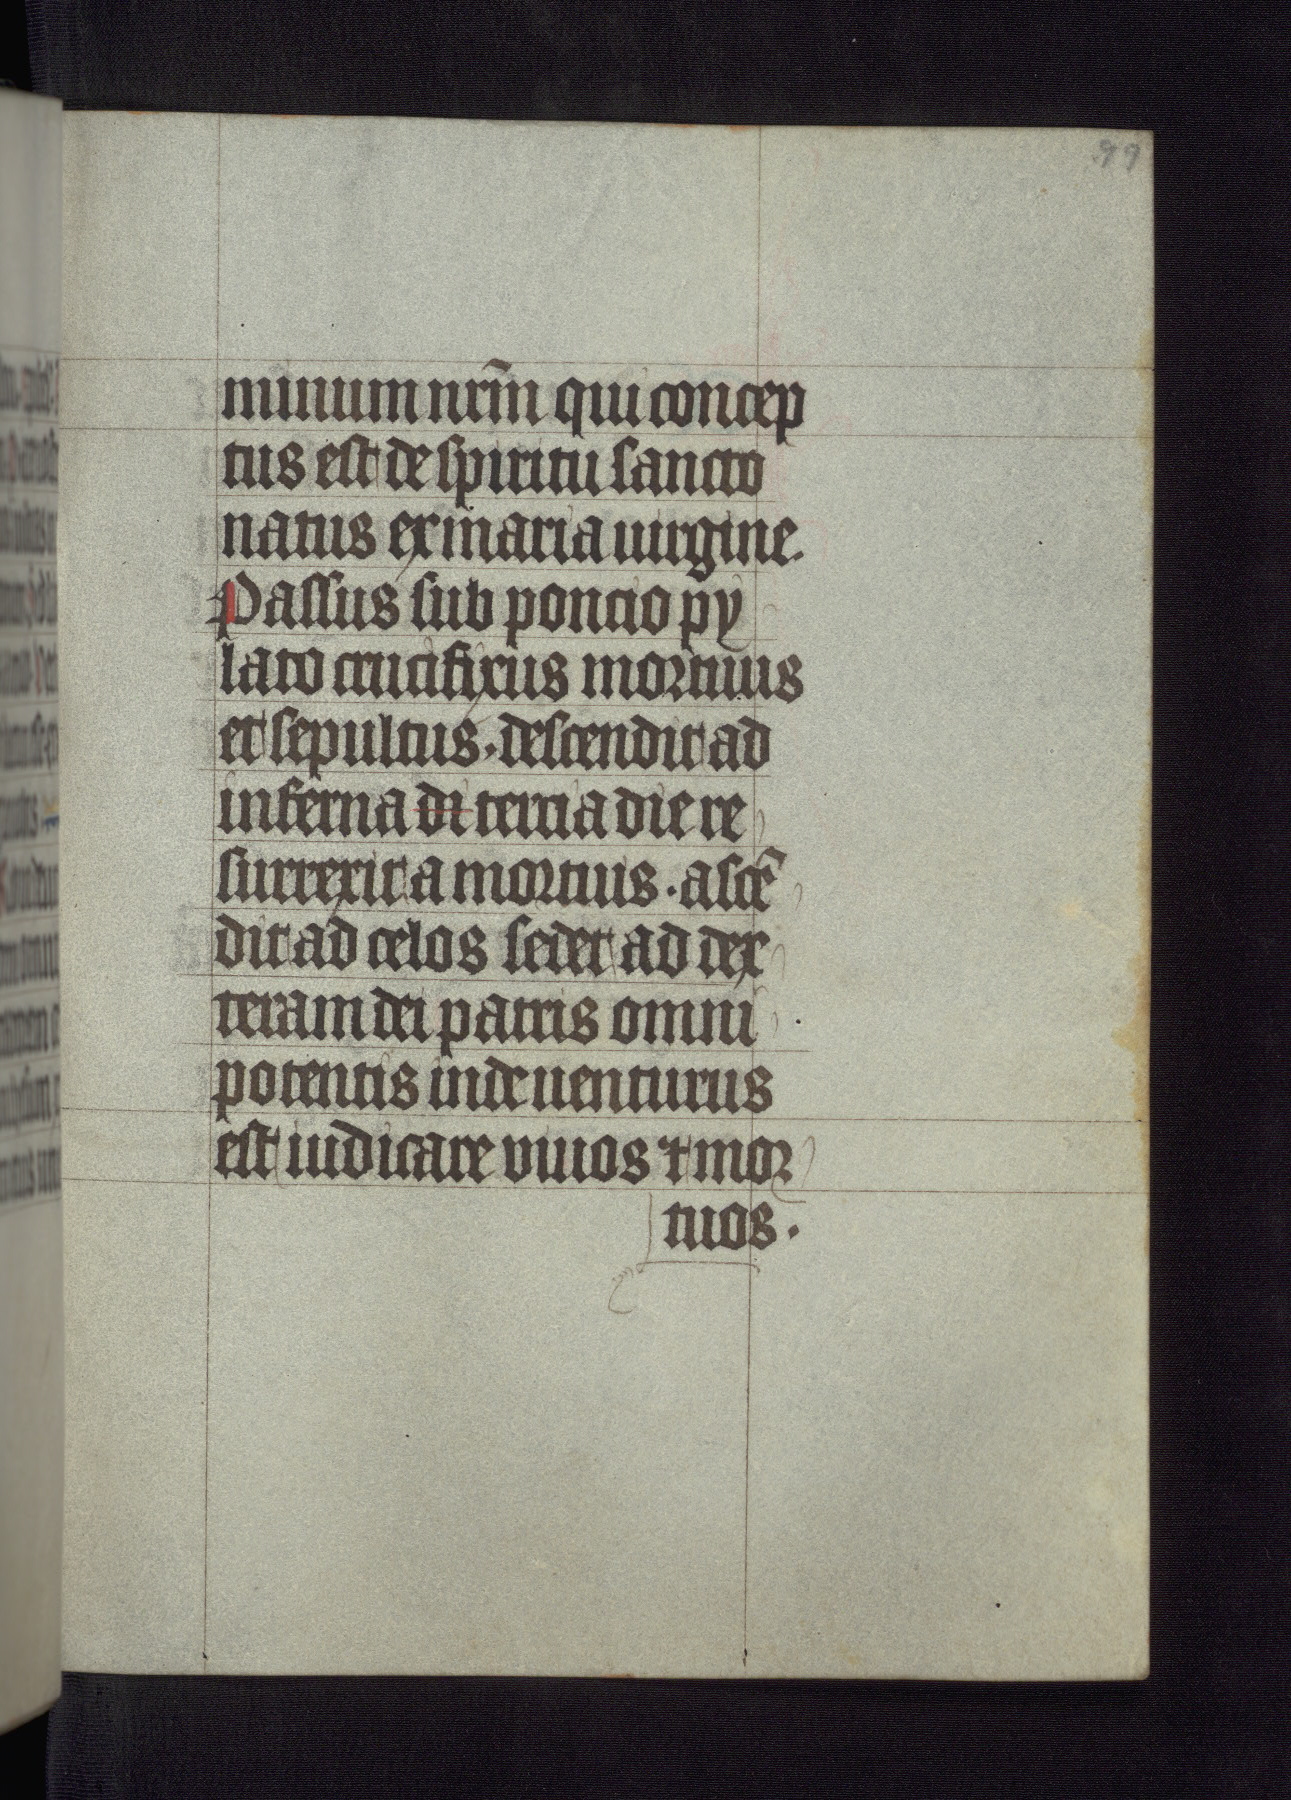 99
minum nr̄m qui concep
tus est de spiritu sancto
natus ex maria uirgine.
Passus sub poncio py
lato crucifixus mortuus
et sepultus. descendit ad
inferna di tertia die re
surrexit a mortuis. ascē
dit ad celos sedet ad dex
teram dei patris omni
potentis inde uenturus
est iudicare viuos ⁊ mor
tuos.